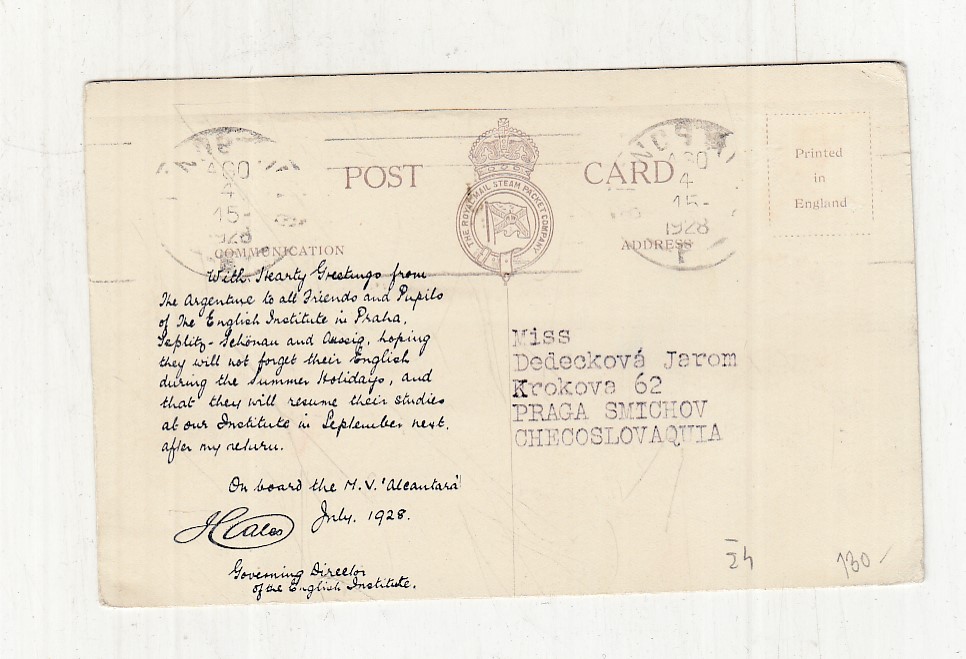 AGO
4
15-
1928
POST CARD
THE ROYAL MAIL STEAM PACKET COMPANY
AGO
4
15-
1928
P
Printed
in
England
COMMUNICATION
ADDRESS
With Hearty Greetings from
The Argentine to all Friends and Pupils
of The English Institute in Praha,
Teplitz-Schönau and Aussig, hoping
they will not forget their English
during the Summer Holidays, and
that they will resume their studies
at our Institute in September next,
after my return.
On board the M.V. 'Alcantara'
July, 1928.
Governing Director
of the English Institute.
Miss
Dedecková Jarom
Krokova 62
PRAGA SMICHOV
CHECOSLOVAQUIA
24
130/-